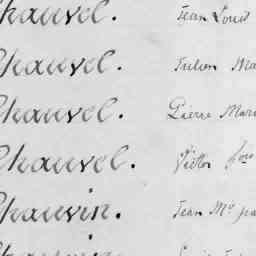 Chauvel. Jean Louis
Chauvel. Julien Ma
Chauvel. Pierre Mari
Chauvel. Victor
Chauvin. Jean Me
Chauvin.